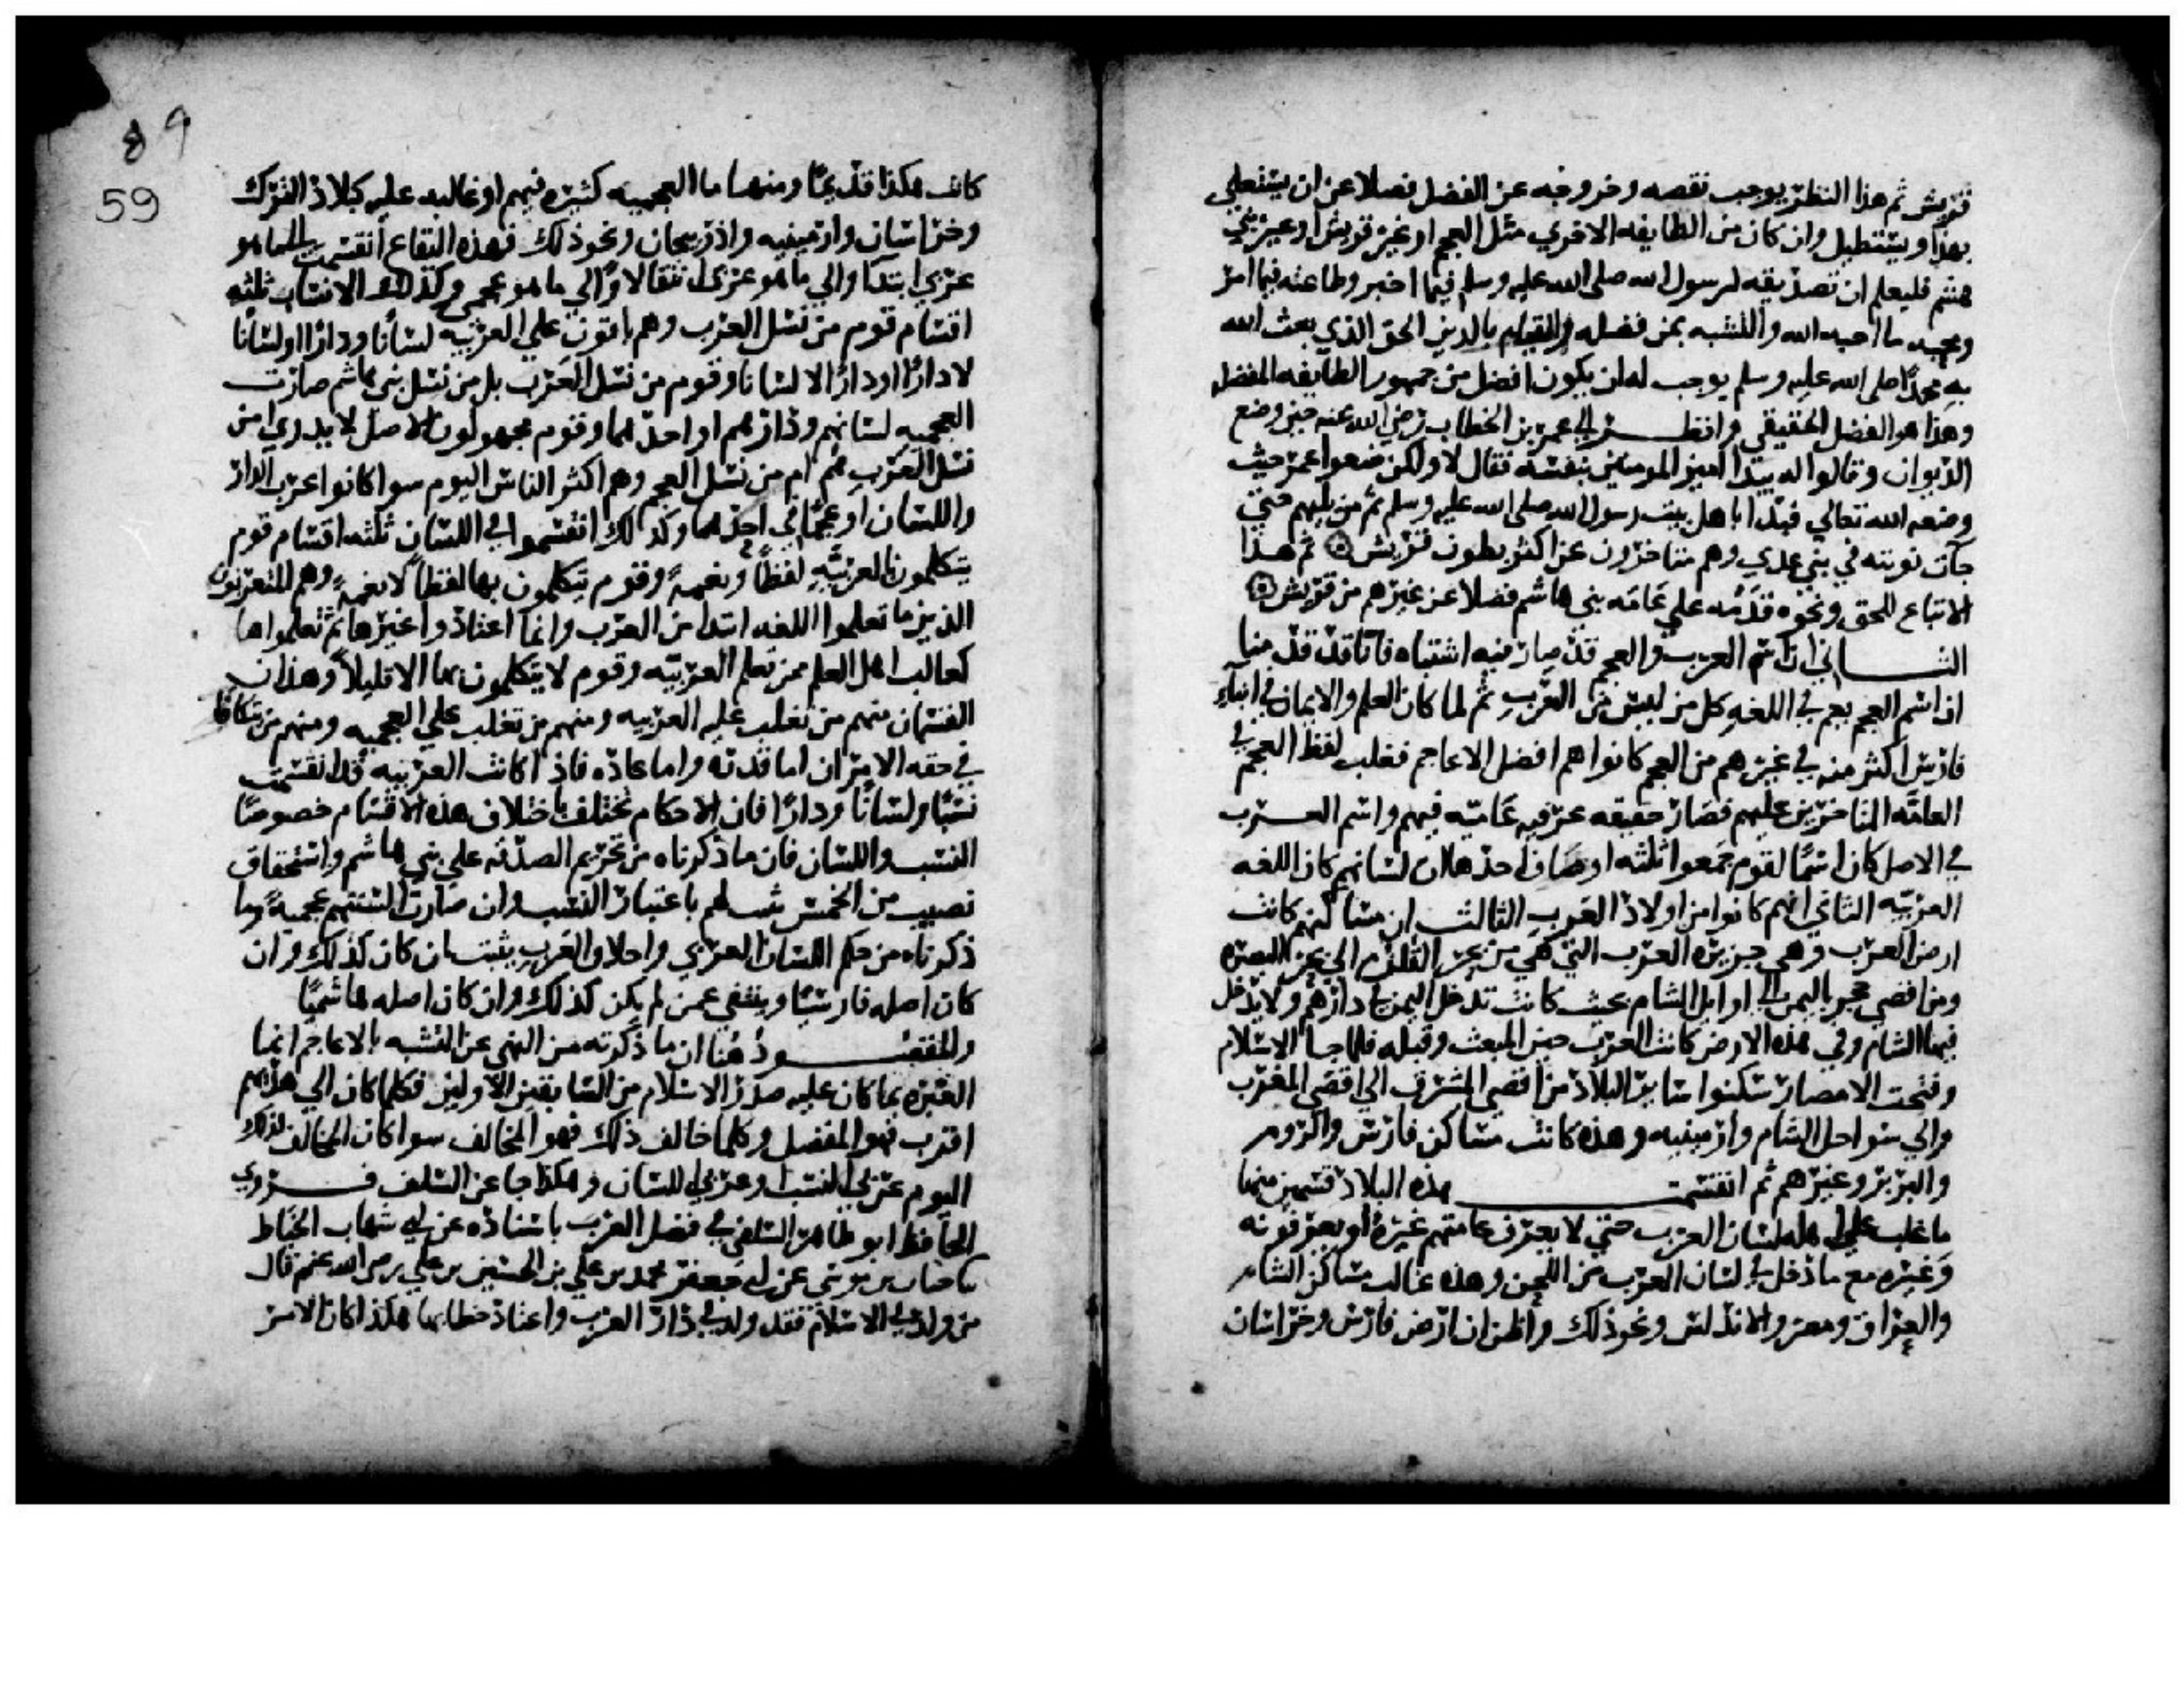 قريش ثم هذا النظر يوجب نقصه وخروجه عن الفضل فضلا عن ان يستعلي
بهذا ويستطيل وان كان من الطايفه الاخري مثل العجم او غير قريش او غير بني
هشم فليعلم ان تصديقه لرسول الله صلى الله عليه وسلم فيما اخبر وطاعته فيما امر
ومحبه ما احبه الله والتشبه بمن فضله والقيام بالدين الحق الذي بعث الله
به محمدا صلى الله عليه وسلم يوجب له ان يكون افضل من جمهور الطايفه المفضله
وهذا هو الفضل الحقيقي وانظر الي عمر بن الخطاب رضي الله عنه حين وضع
الديوان وقالوا له يبتدا امير المومنين بنفسه فقال لا ولكن ضعوا عمر حيث
وضعه الله تعالي فبدا باهل بيت رسول الله صلى الله عليه وسلم ثم من يليهم حتي
جات نوبته في بني عدي وهم متاخرون عن اكثر بطون قريش ثم هذا
الاتباع للحق ونحوه قدمه علي عامه بني هاشم فضلا عن غيرهم من قريش
الثاني ان اسم العرب والعجم قد صار فيه اشتباه فانا قد قدمنا
ان اسم العجم يعم في اللغه كل من ليس من العرب ثم لما كان العلم والايمان في ابناء
فارس اكثر منه في غيرهم من العجم كانوا هم افضل الاعاجم فغلب لفظ العجم في
العامه المتاخرين عليهم فصار حقيقه عرفيه عاميه فيهم واسم العرب
في الاصل كان اسما لقوم جمعوا ثلثه اوصاف احدها ان لسانهم كان اللغه
العربيه الثاني انهم كانوا من اولاد العرب الثالث ان مساكنهم كانت
ارض العرب وهي جزيره العرب التي هي من بحر القلزم الي بحر البصره
ومن اقصي حجر باليمن الي اوايل الشام بحيث كانت تدخل اليمن في دارهم ولا يدخل
فيها الشام وفي هذه الارض كانت العرب حين المبعث وقبله فلما جا الاسلام
وفتحت الامصار سكنوا ساير البلاد من اقصي المشرق الي اقصي المغرب
والي سواحل الشام وارمينيه وهذه كانت مساكن فارس والروم
والبربر وغيرهم ثم انقسمت هذه البلاد قسمين منها
ما غلب علي اهله لسان العرب حتي لا يعرف عامتهم غيره او يعرفونه
وغيره مع ما دخل في لسان العرب من اللحن وهذه غالب مساكن الشام
والعراق ومصر والاندلس ونحو ذلك واظن ان ارض فارس وخراسان
89
59
كانت هكذا قديما ومنها ما العجميه كثيره فيهم او غالبه عليه كبلاد الترك
وخراسان وارمينيه واذربيجان ونحو ذلك فهذه البقاع انقسمت الي ما هو
عربي ابتدا والي ما هو عربي انتقالا والي ما هو عجمي وكذلك الانساب ثلثه
اقسام قوم من نسل العرب وهم باقون علي العربيه لسانا ودارا او لسانا
لا دارا او دارا لا لسانا وقوم من نسل العرب بل من نسل بني هاشم صارت
العجميه لسانهم ودارهم او احدهما وقوم مجهولون الاصل لا يدري امن
نسل العرب هم ام من نسل العجم وهم اكثر الناس اليوم سوا كانوا عرب الدار
واللسان او عجما في احدهما وكذلك انقسموا في اللسان ثلثه اقسام قوم
يتكلمون بالعربيه لفظا ونغمة وقوم يتكلمون بها لفظا لا نغمة وهم المتعربون
الذين ما تعلموا اللغه ابتدا من العرب وانما اعتادوا غيرها ثم تعلموها
كغالب اهل العلم ممن تعلم العربيه وقوم لا يتكلمون بها الا قليلا وهذان
القسمان منهم من تغلب عليه العربيه ومنهم من تغلب عليه العجميه ومنهم من تكافا
في حقه الامران اما قدرة واما عادة فاذا كانت العربيه قد انقسمت
نسبا ولسانا ودارا فان الاحكام تختلف باختلاف هذه الاقسام خصوصا
النسب واللسان فان ما ذكرناه من تحريم الصدقه علي بني هاشم واستحقاق
نصيب من الخمس ثبت لهم باعتبار النسب وان صارت السنتهم عجمية وما
ذكرناه من حكم اللسان العربي واخلاق العرب يثبت لمن كان كذلك وان
كان اصله فارسيا وينتفي عمن لم يكن كذلك وان كان اصله هاشميا
والمقصود هنا ان ما ذكرته من النهي عن التشبه بالاعاجم انما
العبره بما كان عليه صدر الاسلام من السابقين الاولين فكلما كان الي هديهم
اقرب فهو المفضل وكلما خالف ذلك فهو المخالف سوا كان المخالف لذلك
اليوم عربي النسب او عربي اللسان وهكذا جا عن السلف فروي
الحافظ ابو طاهر السلفي في فضل العرب باسناده عن ابي شهاب الحناط
بن موسى عن ابي جعفر محمد بن علي بن الحسين بن علي رضي الله عنهم قال
من ولد في الاسلام فقد ولد في دار العرب واعتاد خطابها هكذا كان الامر